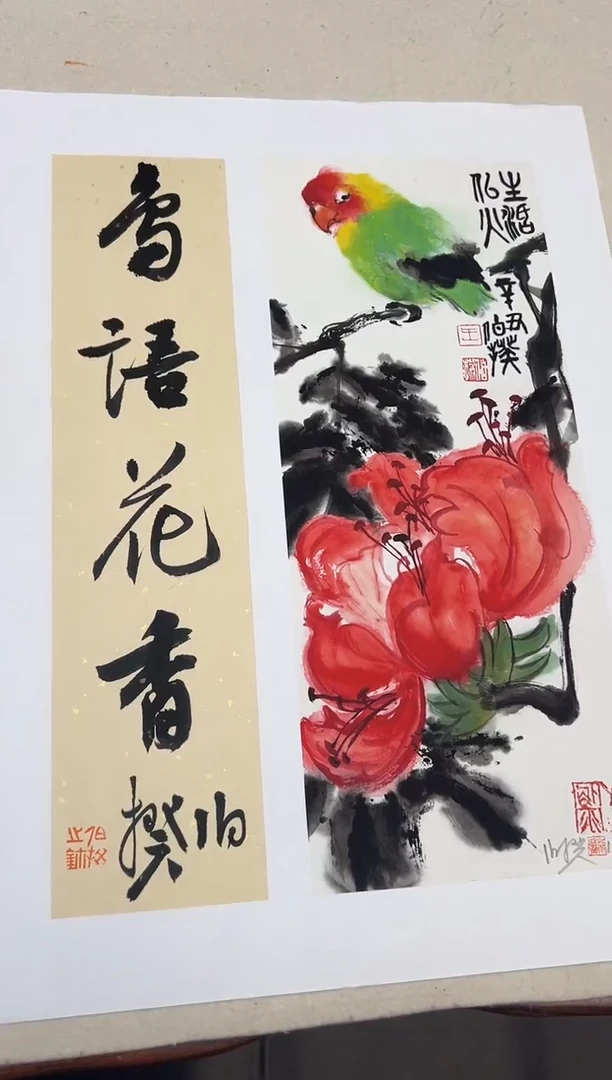 鳥語花香
伯揆
生活
似火
辛丑
伯揆
伯揆